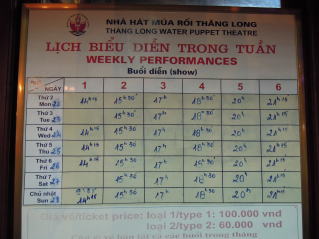 NHÀ HÁT MÚA RỐI THĂNG LONG
THANG LONG WATER PUPPET THEATRE
LỊCH BIỂU DIỄN TRONG TUẦN
WEEKLY PERFORMANCES
Buổi diễn (show)
NGÀY 1 2 3 4 5 6
Thứ 2
Mon 22 14h15 15h30 17h 18h30 20h 21h15
Thứ 3
Tue 23 15h30 17h 18h30 20h 21h15
Thứ 4
Wed 24 14h15 15h30 17h 18h30 20h 21h15
Thứ 5
Thu 25 14h15 15h30 17h 18h30 20h 21h15
Thứ 6
Fri 26 14h15 15h30 17h 18h30 20h 21h15
Thứ 7
Sat 27 15h30 17h 18h30 20h 21h15
Chủ nhật
Sun 28 14h15 15h30 17h 18h30 20h 21h15
Giá vé/ticket price: loại 1/type 1: 100.000 vnd
loại 2/type 2: 60.000 vnd